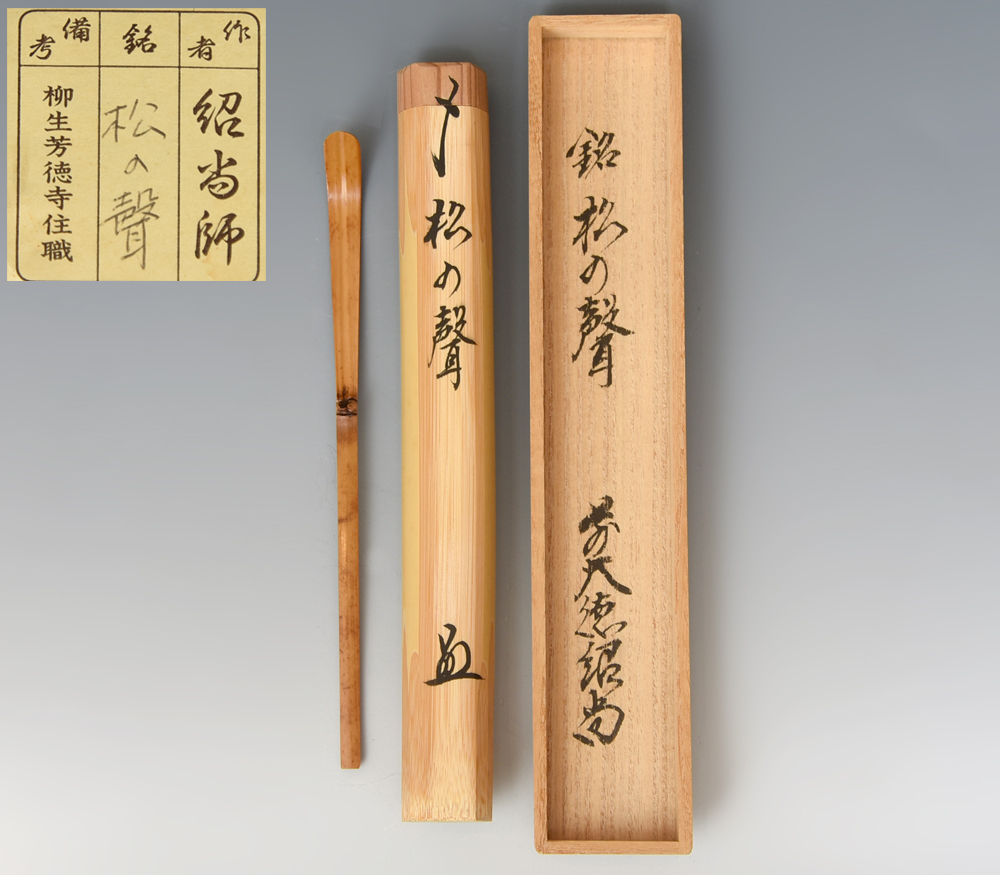 作者
紹尚師
銘
松の聲
備考
柳生芳徳寺住職
松の聲
銘 松の聲
前大徳紹尚